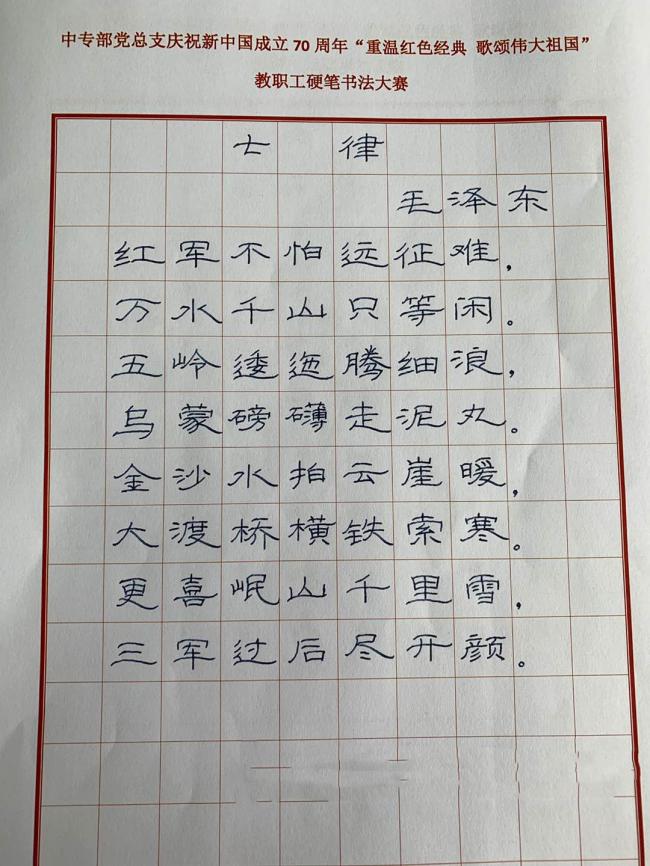 中专部党总支庆祝新中国成立70周年“重温红色经典 歌颂伟大祖国”
教职工硬笔书法大赛
七律
毛泽东
红军不怕远征难，
万水千山只等闲。
五岭逶迤腾细浪，
乌蒙磅礴走泥丸。
金沙水拍云崖暖，
大渡桥横铁索寒。
更喜岷山千里雪，
三军过后尽开颜。